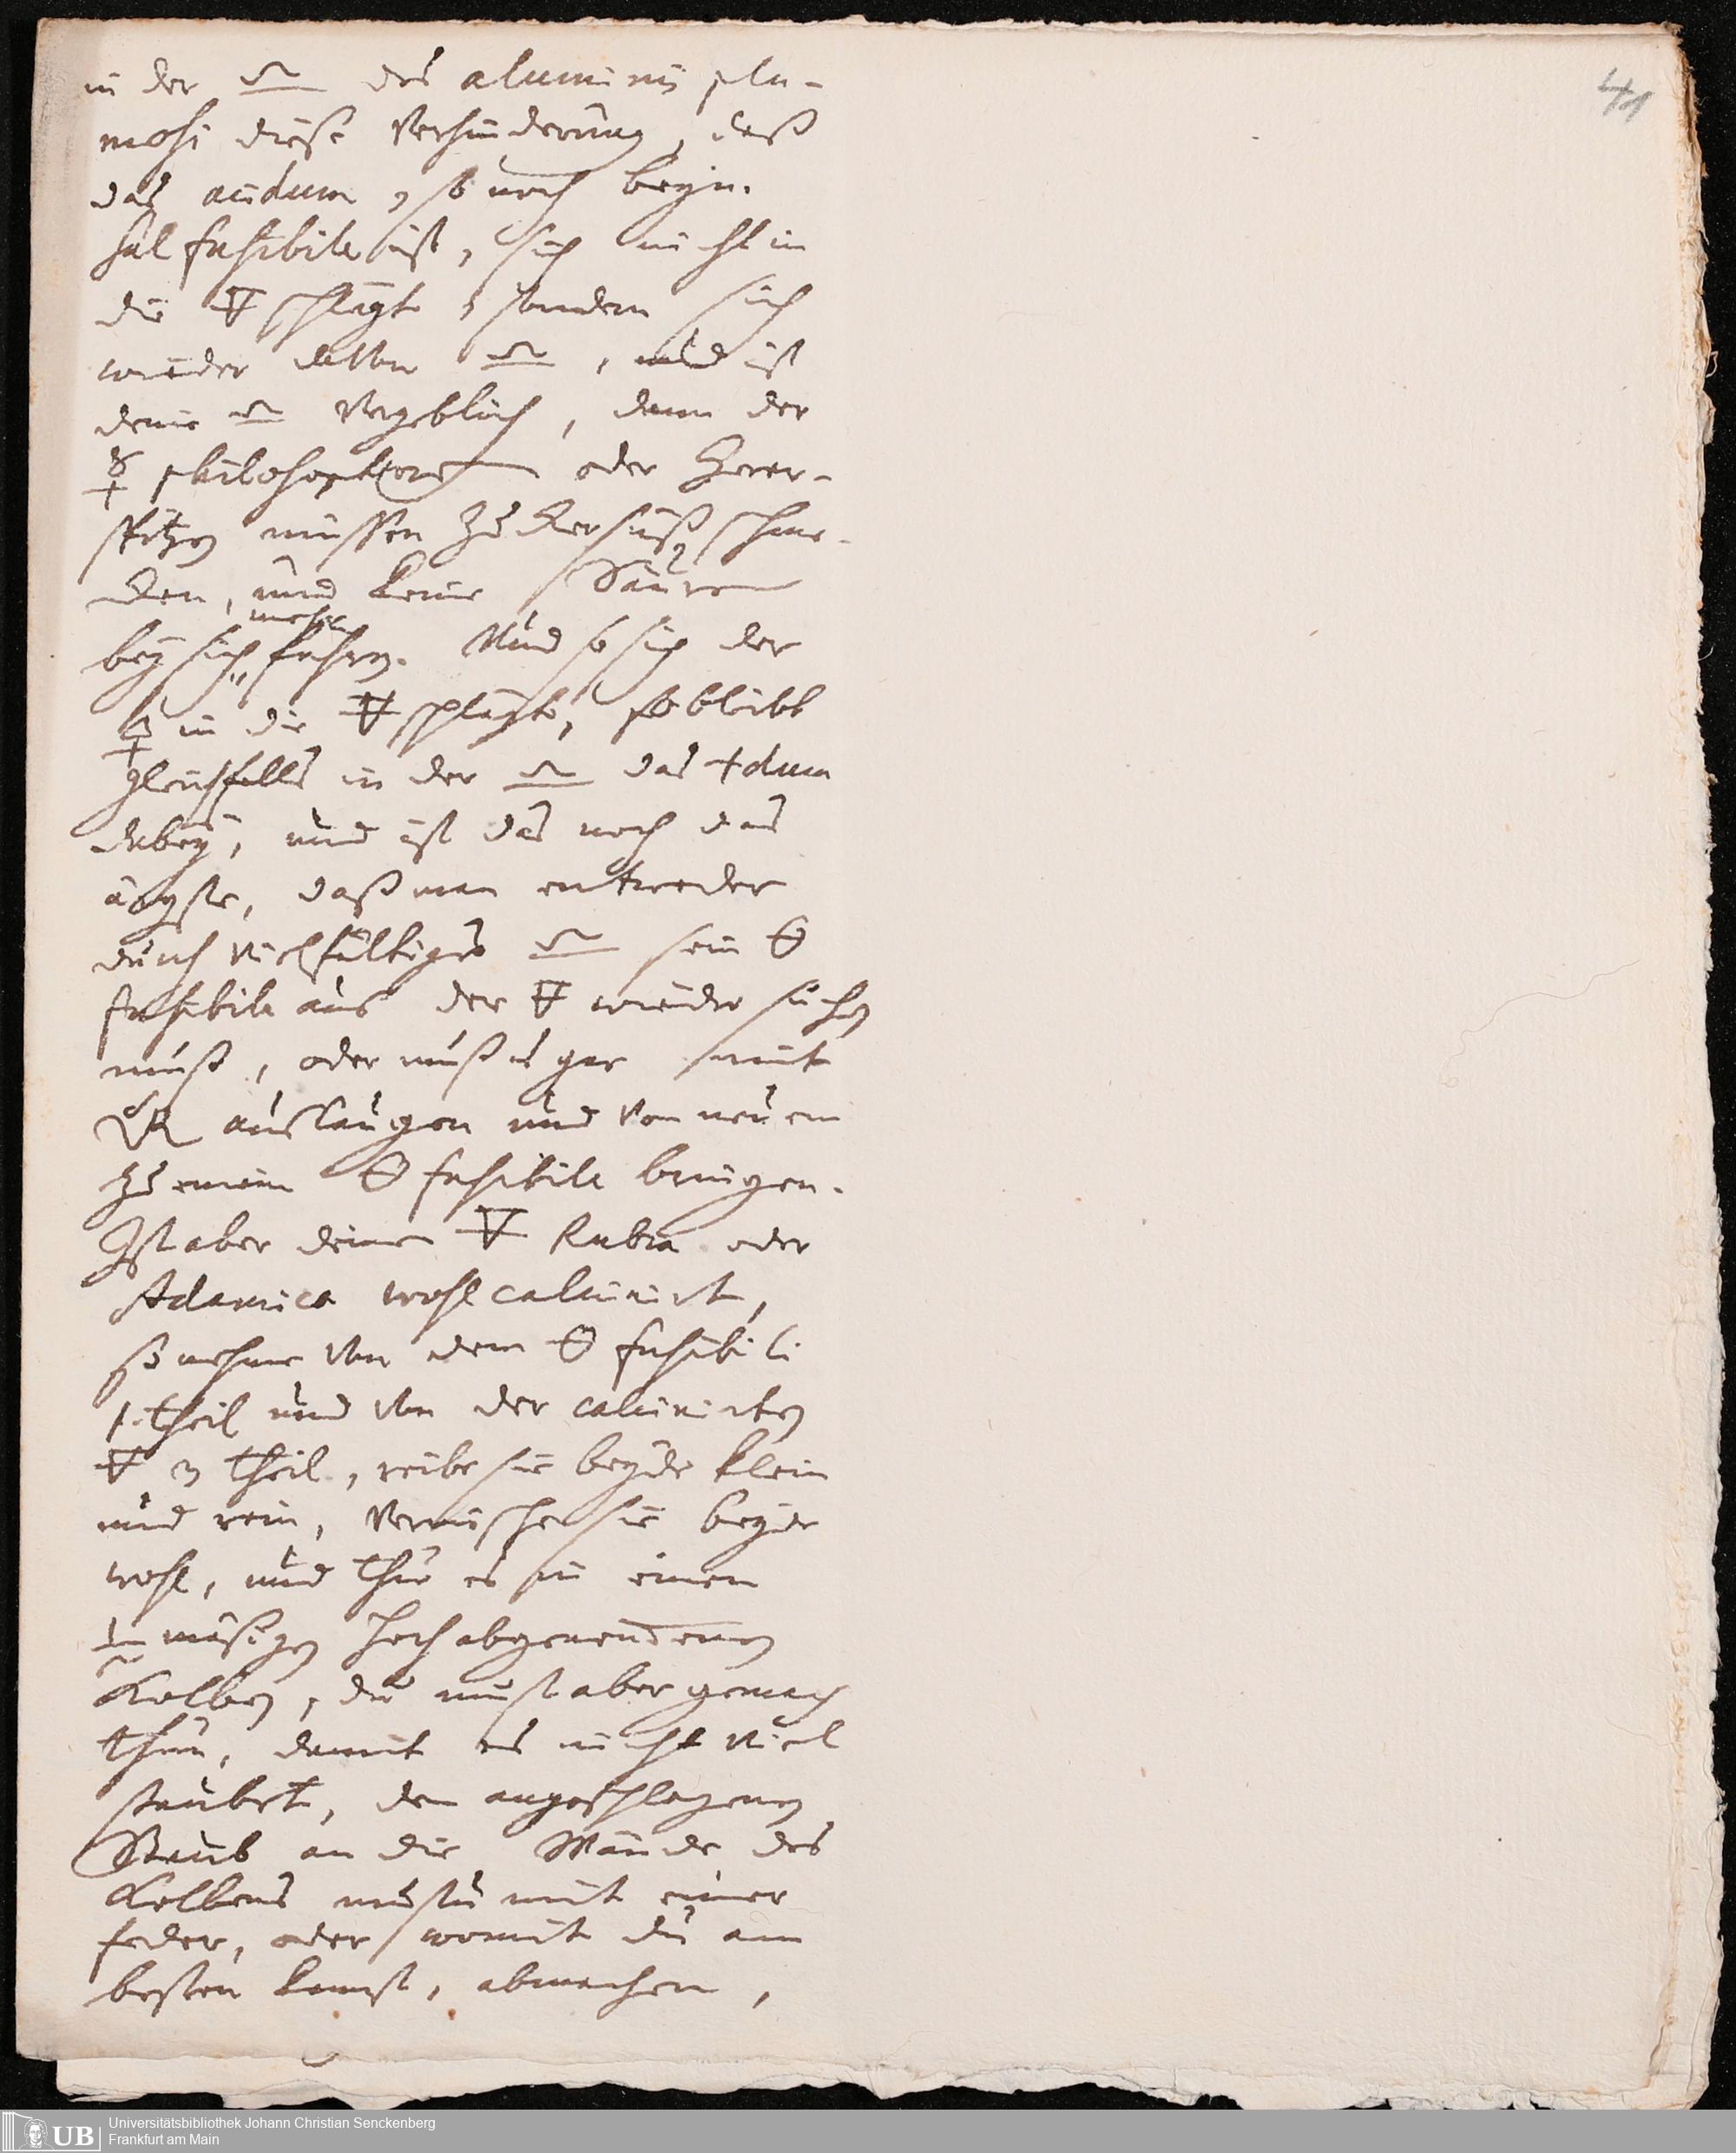 41
in der ♎ des aluminis plu-
mosi diese Verhinderung, daß
das acidum, so noch beym
sal fusibile ist, sich nicht in
die 🜃 schlägt, sondern sich
wieder ♎, und ist
deine ♎ vergeblich, denn der
☿ philosophorum oder
müssen Zuckersüß schme-
cken, und keine Säuren
mehr
bey sich führen. Und so sich der
🜍 in die 🜃 schlägt, so bleibt
gleichfalls in der ♎ das +dum
dabey, und ist das noch das
ärgste, daß man entweder
durch vielfältiges ♎ sein 🜔
fusibile aus der 🜃 wieder suchen
muß, oder muß es gar mit
auslaugen und von neuem
zu einem 🜔 fusibile bringen.
Ist aber deine 🜃 Rubra oder
Adamica wohl calcinirt,
so nehme von dem 🜔 fusibili
1. theil und von der calcinirten
🜃 3 theil, reibe sie beyde klein
und rein, vermische sie beyde
wohl, und thue es in einen
mäßigen hoch
Kolben, du must aber gemach
thun, damit es nicht viel
staubet, den angeschlagenen
Staub an die Wände des
Kolbens mustu mit einer
feder, oder womit du am
besten kanst, abmachen,
UB
Universitätsbibliothek Johann Christian Senckenberg
Frankfurt am Main